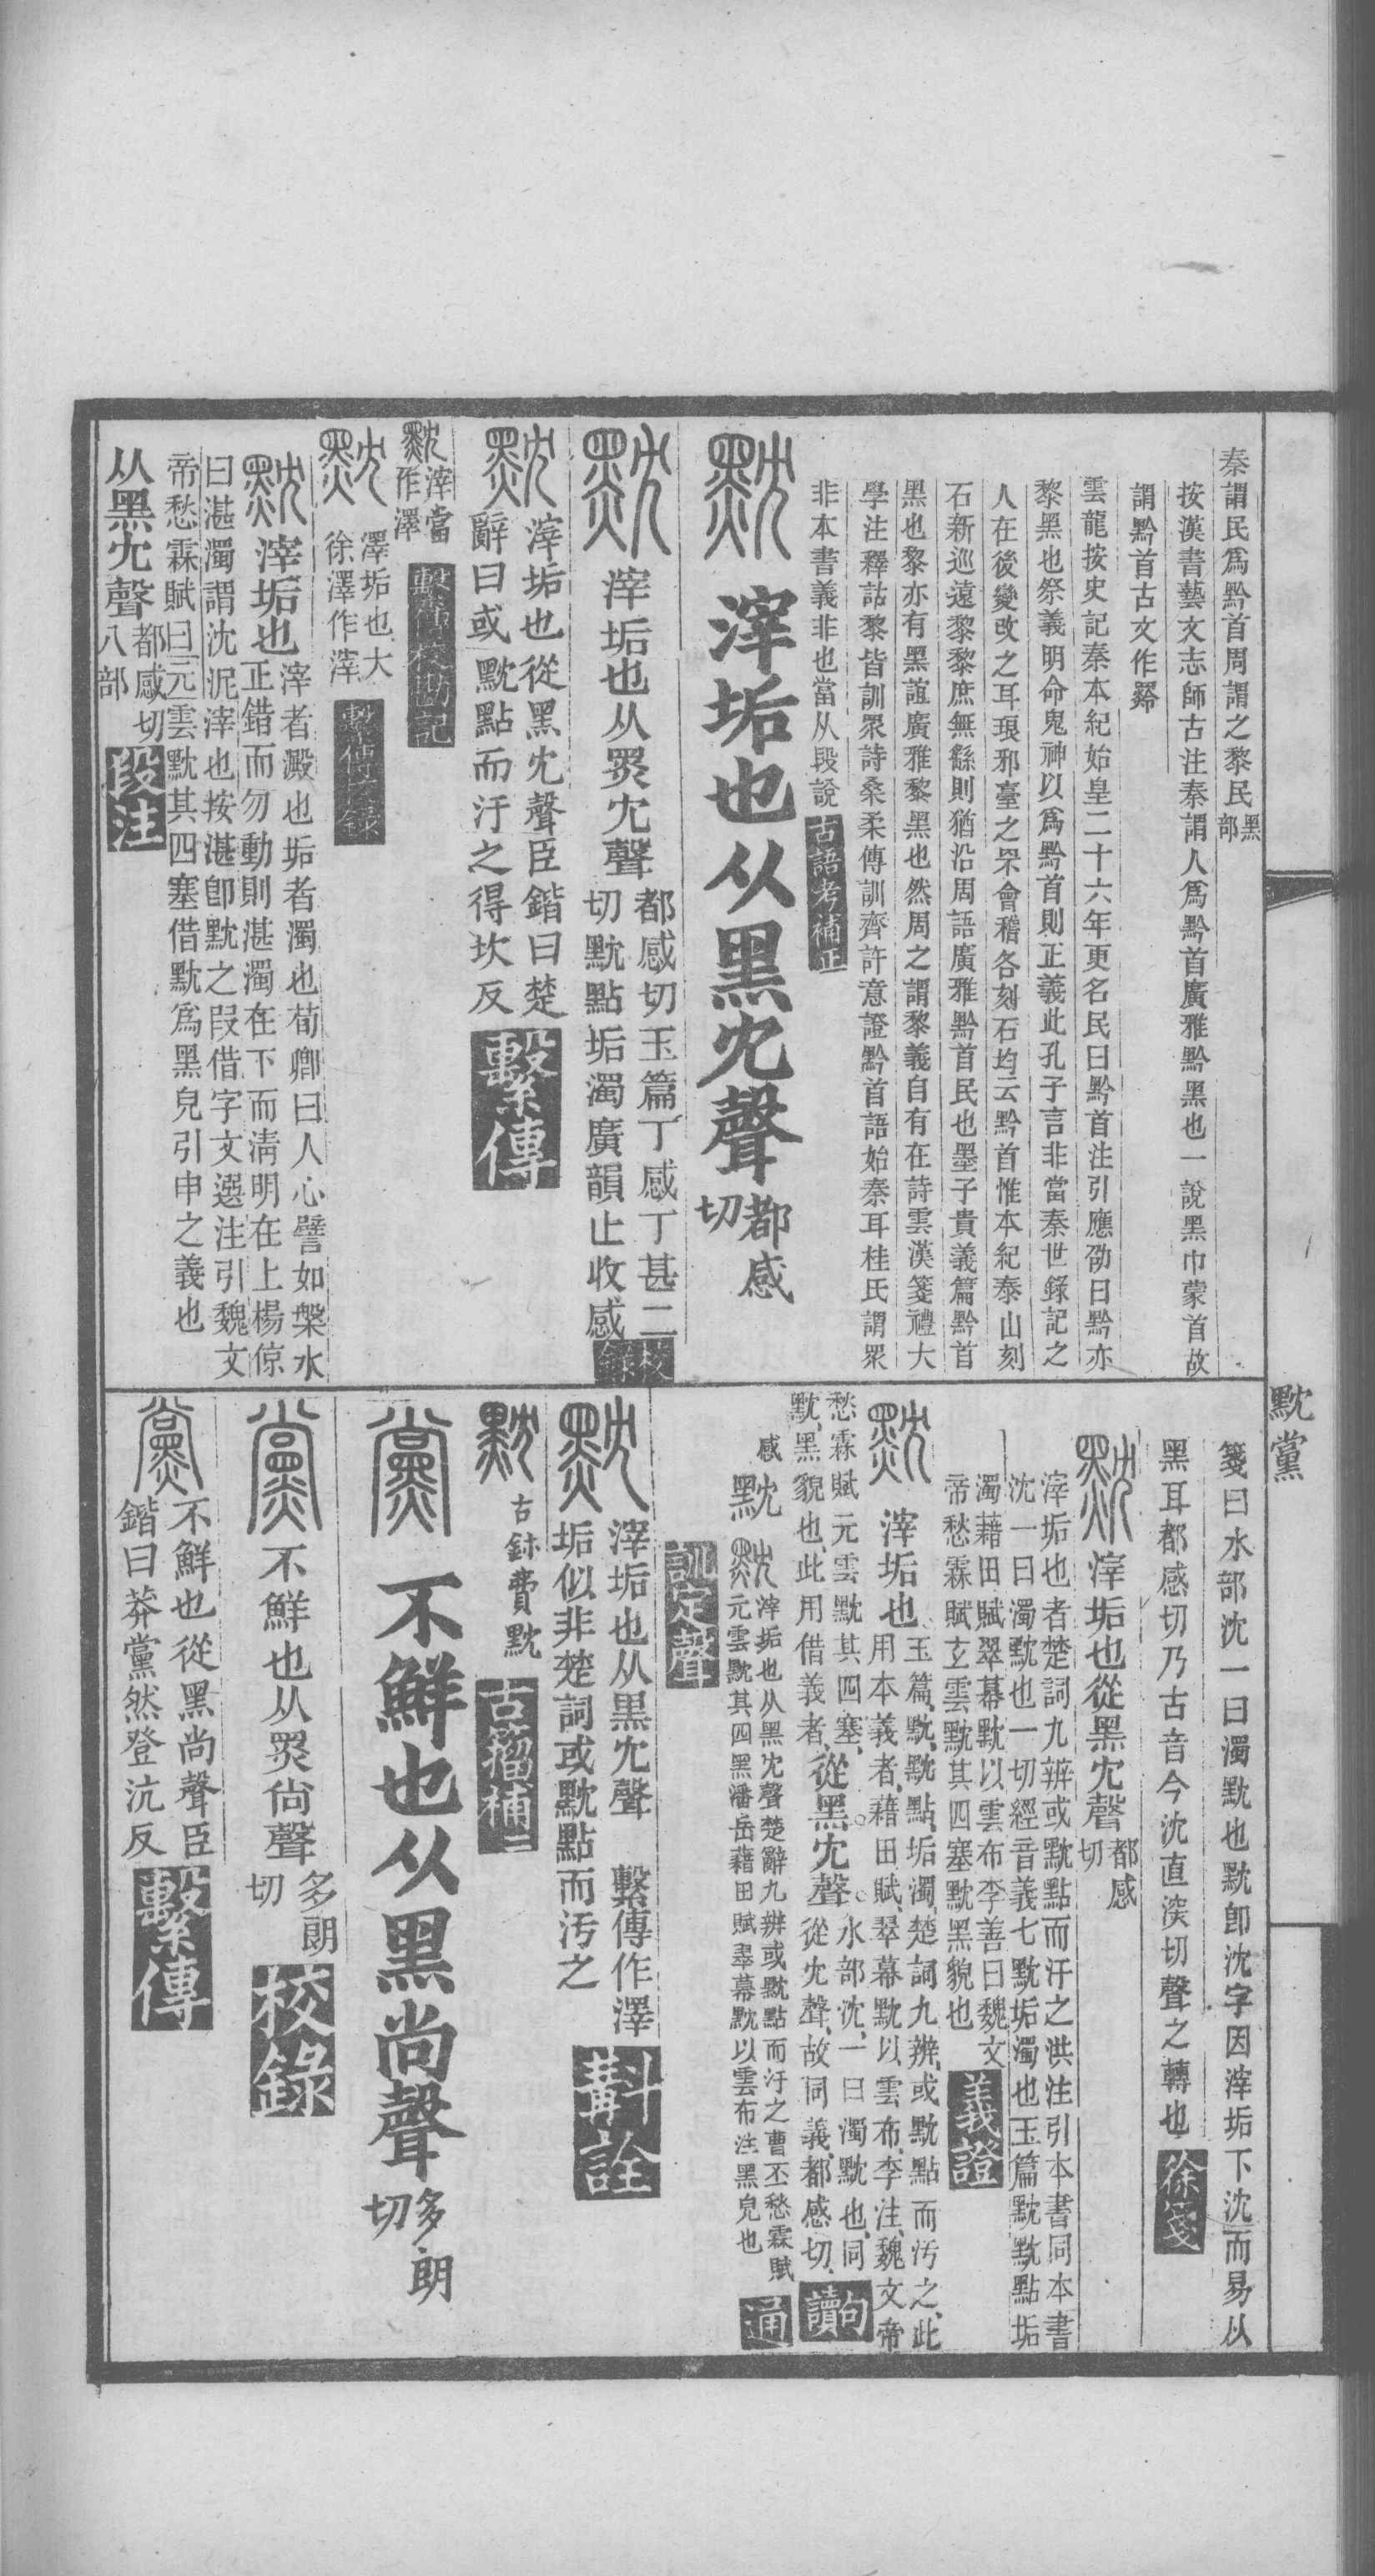 秦謂民爲黔首周謂之黎民黑部
按漢書藝文志師古注秦謂人爲黔首廣雅黔黑也一說黑巾蒙首故
謂黔首古文作黔
雲龍按史記秦本紀始皇二十六年更名民曰黔首注引應劭曰黔亦
黎黑也祭義明命鬼神以爲黔首則正義此孔子言非當秦世錄記之
人在後變改之耳琅邪臺之罘會稽各刻石均云黔首惟本紀泰山刻
石新巡遠黎黎庶無繇則猶沿周語廣雅黔首民也墨子貴義篇黔首
黑也黎亦有黑誼廣雅黎黑也然周之謂黎義自有在詩雲漢箋禮大
學注釋詁黎皆訓眾詩桑柔傳訓齊許意證黔首語始秦耳桂氏謂眾
非本書義非也當从段說 古語考補正
黕 滓垢也从黑冘聲 都感切
黕 滓垢也从黑冘聲 都感切玉篇丁感丁甚二
切黕點垢濁廣韻止收感 校錄
黕 滓垢也從黑冘聲臣鍇曰楚
辭曰或黕點而汙之得坎反 繫傳
黕 滓當
作澤 繫傳校勘記
黕 澤垢也大
徐澤作滓 繫傳校錄
黕 滓垢也 滓者澱也垢者濁也荀卿曰人心譬如槃水
正錯而勿動則湛濁在下而淸明在上楊倞
曰湛濁謂沈泥滓也按湛卽黕之叚借字文選注引魏文
帝愁霖賦曰元雲黕其四塞借黕爲黑皃引申之義也
从黑冘聲 都感切
八部 段注
黕黨
箋曰水部沈一曰濁黕也黕卽沈字因滓垢下沈而易从
黑耳都感切乃古音今沈直深切聲之轉也 徐箋
黕 滓垢也從黑冘聲 都感切
滓垢也者楚詞九辨或黕點而汙之洪注引本書同本書
沈一曰濁黕也一切經音義七黕垢濁也玉篇黕黕點垢
濁藉田賦翠幕黕以雲布李善曰魏文
帝愁霖賦玄雲黕其四塞黕黑貌也 義證
黕 滓垢也 玉篇黕黕點垢濁楚詞九辨或黕點而汚之此
用本義者藉田賦翠幕黕以雲布李注魏文帝
愁霖賦元雲黕其四塞
黕黑貌也此用借義者 從黑冘聲 水部沈一曰濁黕也同
從冘聲故同義都感切 句讀
感 黕 黕 滓垢也从黑冘聲楚辭九辨或黕點而汙之曹丕愁霖賦
元雲黕其四黑潘岳藉田賦翠幕黕以雲布注黑皃也 通
訓定聲
黕 滓垢也从黑冘聲 繫傳作澤
垢似非楚詞或黕點而汚之 斠詮
黕 古鉥費黕 古籀補
黨 不鮮也从黑尚聲 多朗切
黨 不鮮也从黑尚聲 多朗切 校錄
黨 不鮮也從黑尚聲臣
鍇曰莽黨然登沆反 繫傳